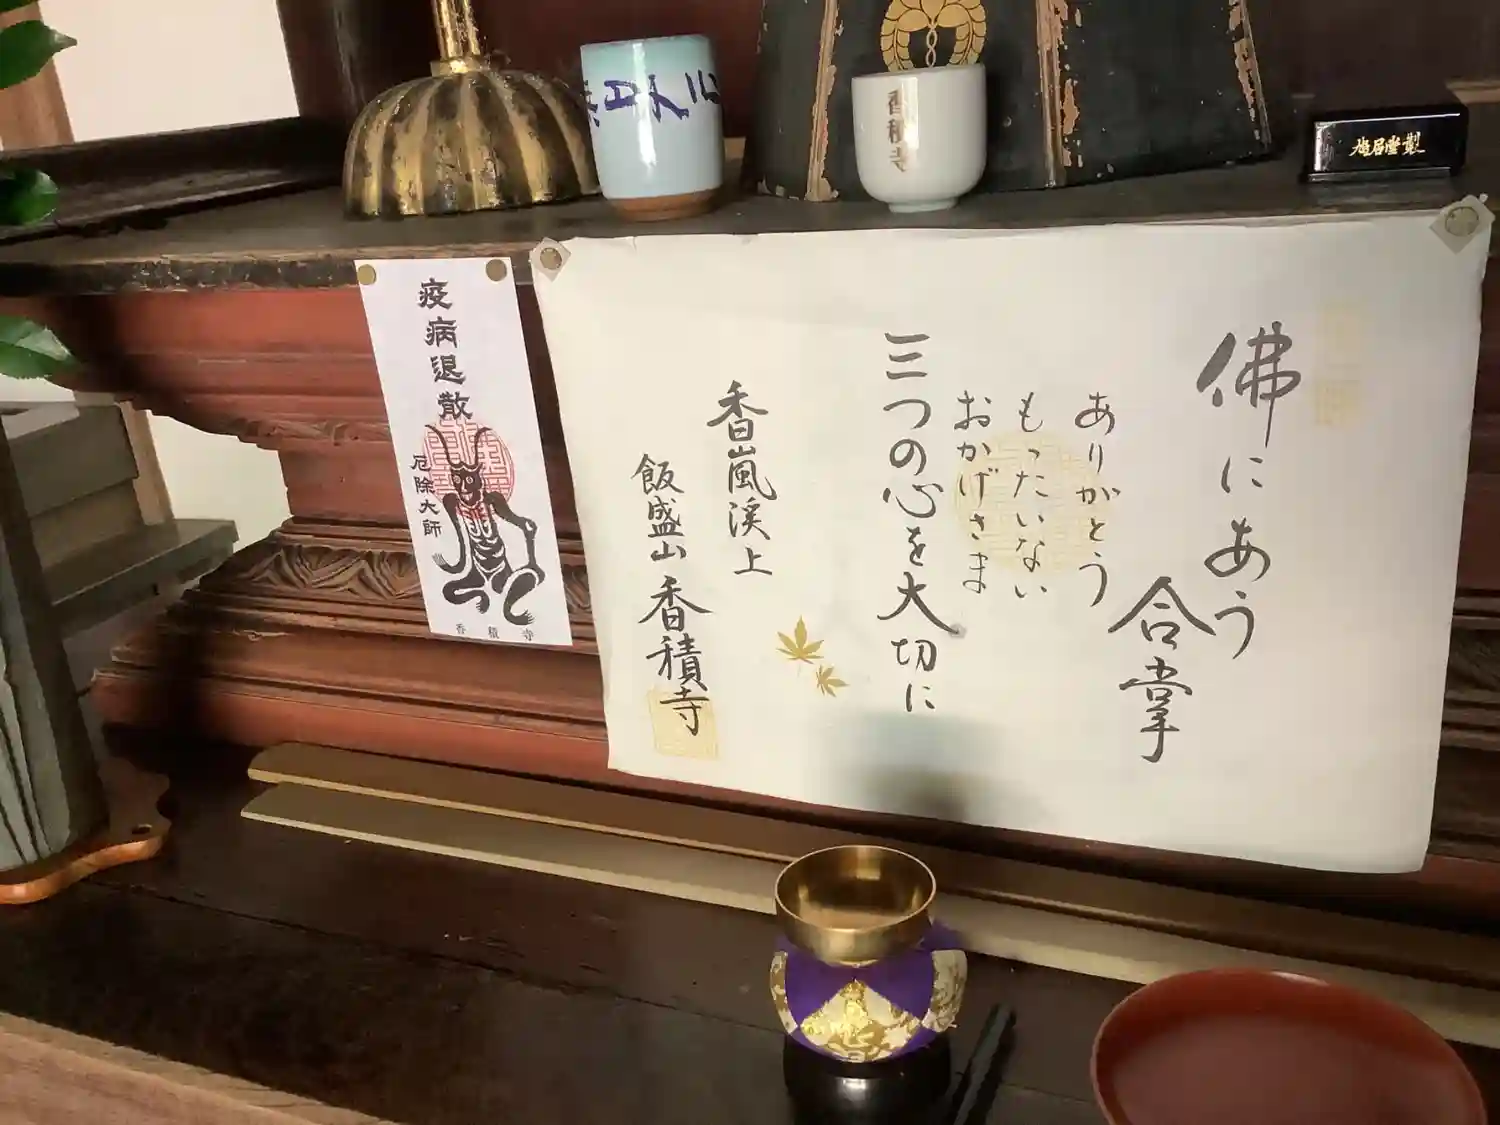 香積寺
鳩居堂製
佛にあう
合掌
ありがとう
もったいない
おかげさま
三つの心を大切に
香嵐渓上
飯盛山 香積寺
疫病退散
厄除大師
香積寺